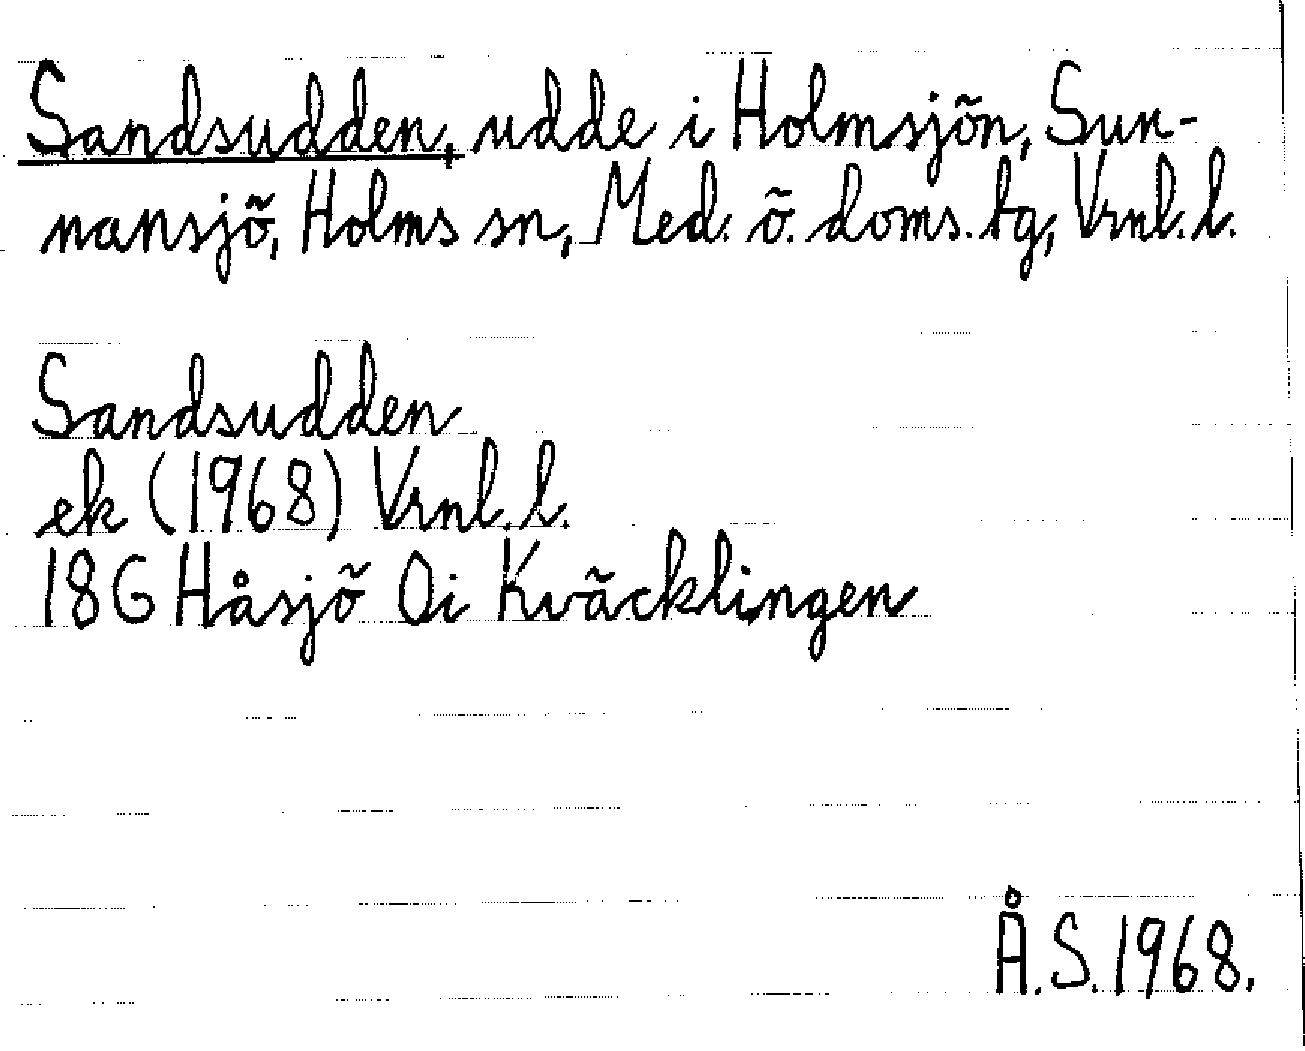 Sandsudden, udde i Holmsjön, Sun-
nansjö, Holms sn, Med. ö. doms. tg, Vrnl. l.
Sandsudden
ek (1968) Vrnl. l.
18G Håsjö Oi Kväcklingen
Å.S. 1968.